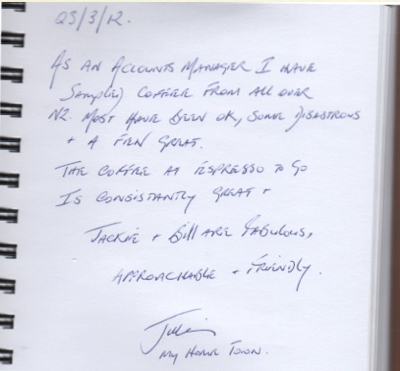 23/3/12.
AS AN ACCOUNTS MANAGER I HAVE
SAMPLED COFFEE FROM ALL OVER
NZ. MOST HAVE BEEN OK, SOME DISASTROUS
+ A FEW GREAT.
THE COFFEE AT ESPRESSO TO GO
IS CONSISTANTLY GREAT +
JACKIE + BILL ARE FABULOUS,
APPROACHABLE + FRIENDLY.
MY HOME TOWN.